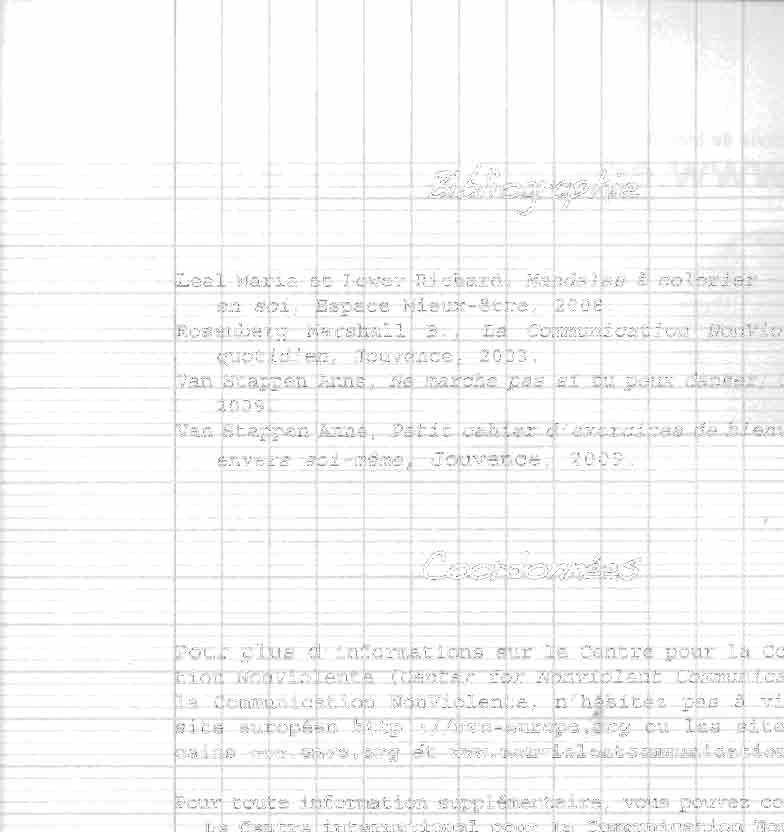 Bibliographie
Leal Maria et Power Richard, Mandalas à colorier
en soi, Espace Mieux-être, 2008
Rosenberg Marshall B., La Communication NonVio
quotidien, Jouvence, 2003.
Van Stappen Anne, Ne marche pas si tu peux danser,
2009
Van Stappen Anne, Petit cahier d'exercices de bienv
envers soi-même, Jouvence, 2009.
Coordonnées
Pour plus d'informations sur le Centre pour la Co
tion NonViolente (Center for Nonviolent Communica
la Communication NonViolente, n'hésitez pas à vi
site européen ou les site
cains et
Pour toute information supplémentaire, vous pouvez co
Le Centre international pour la Communication Non